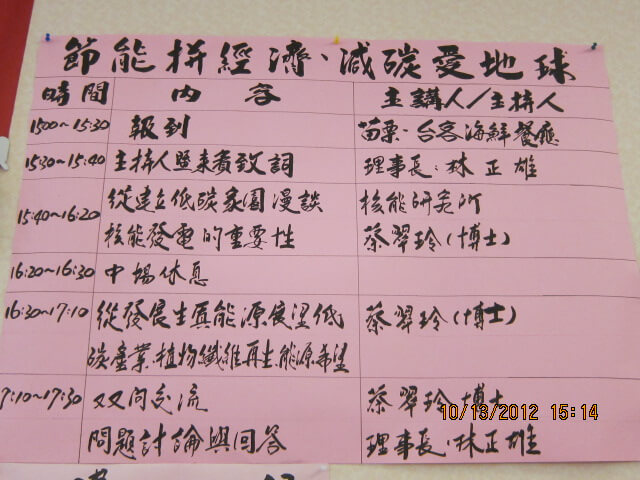 節能拚經濟、減碳愛地球
時間 內容 主講人/主持人
15:00~15:30 報到 苗栗·台客海鮮餐廳
15:30~15:40 主持人暨來賓致詞 理事長:林正雄
15:40~16:20 從建立低碳家園漫談 核能研究所
核能發電的重要性 蔡翠玲(博士)
16:20~16:30 中場休息
16:30~17:10 從發展生質能源展望低 蔡翠玲(博士)
碳產業·植物纖維再生能源希望
7:10~17:30 双向交流 蔡翠玲 博士
問題討論與回答 理事長·林正雄
10/13/2012 15:14